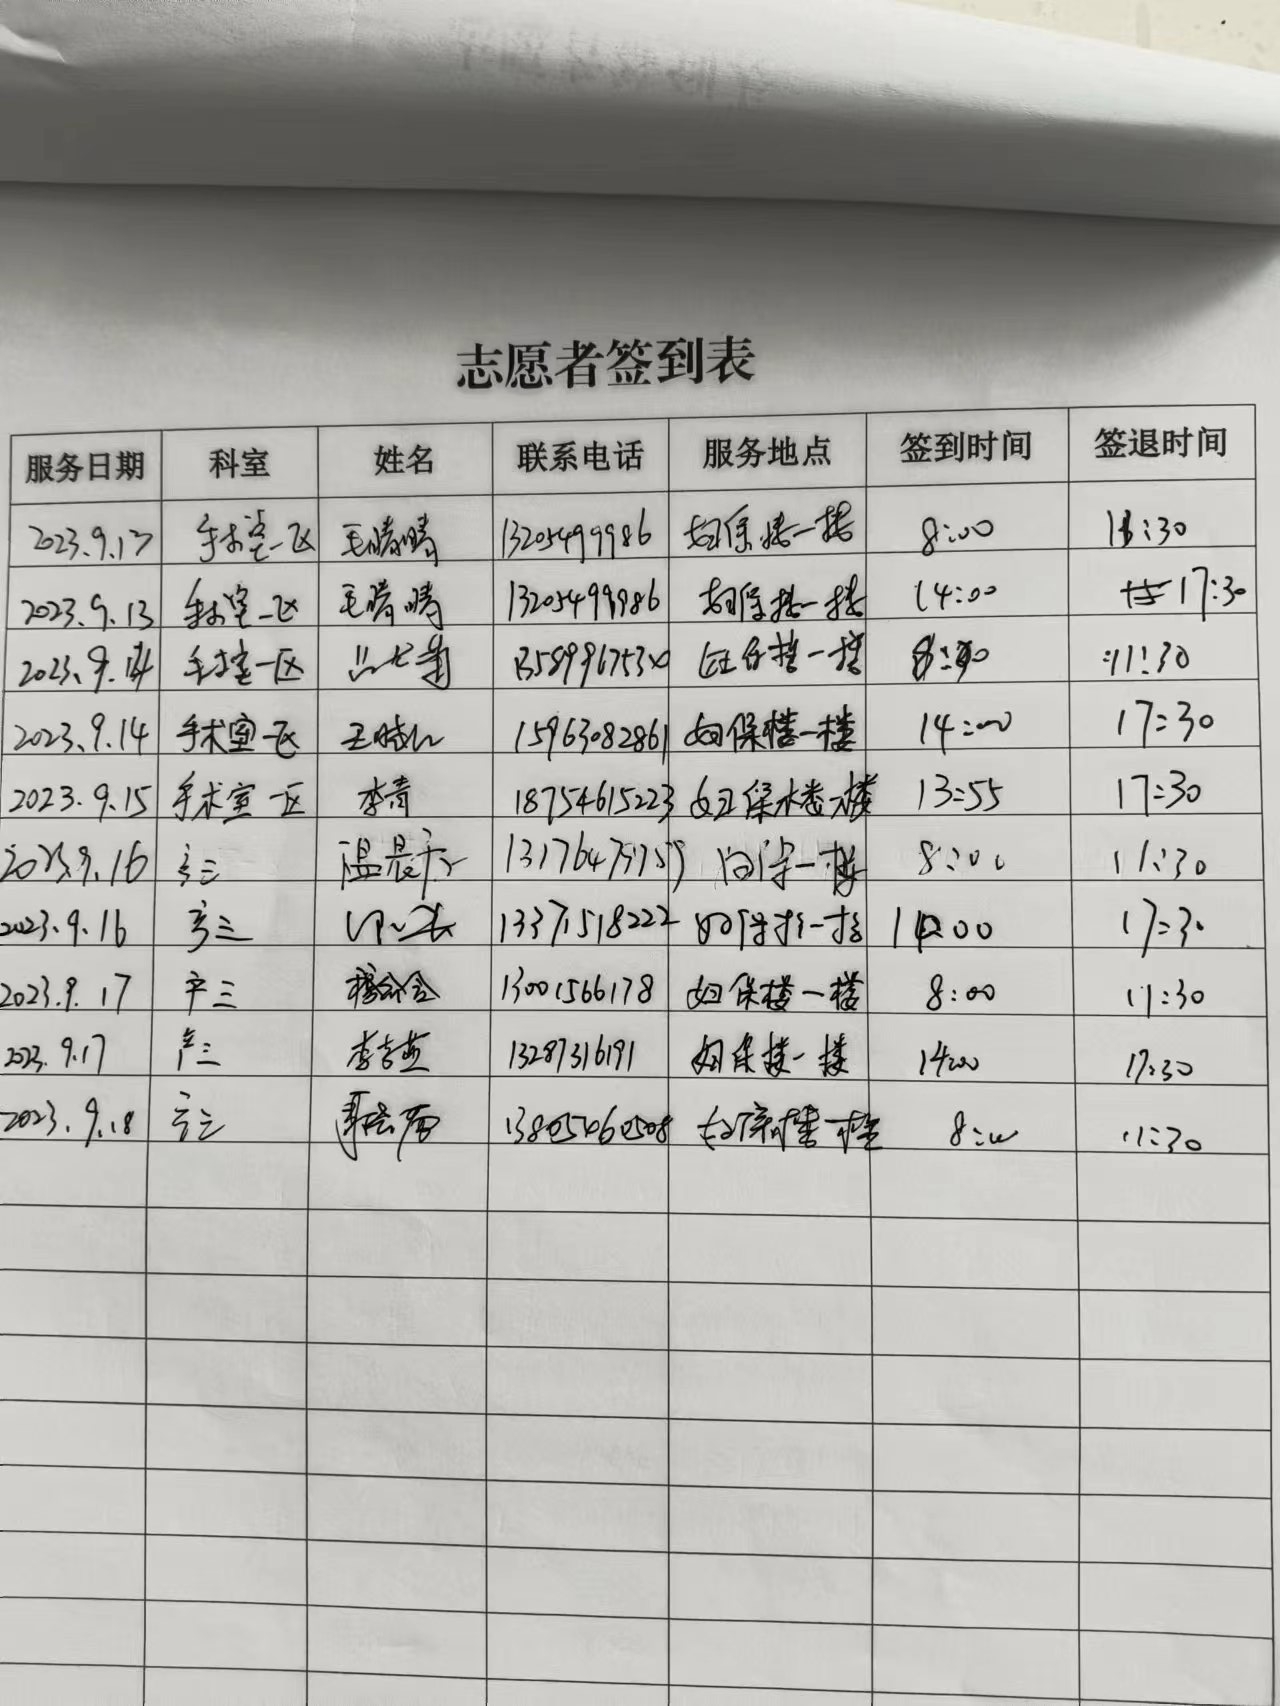 志愿者签到表
服务日期 科室 姓名 联系电话 服务地点 签到时间 签退时间
2023.9.13 手术室一区 毛晴晴 13205499986 妇保楼一楼 8:00 11:30
2023.9.13 手术室一区 毛晴晴 13205499986 妇保楼一楼 14:00 17:30
2023.9.14 手术室一区 妇保楼一楼 11:30
2023.9.14 手术室一区 15963082861 妇保楼一楼 14:00 17:30
2023.9.15 手术室一区 李青 18754615223 妇保楼一楼 13:55 17:30
2023.9.16 产三 一楼 8:00 11:30
2023.9.16 产三 13371518222 妇保楼一楼 14:00 17:30
2023.9.17 产三 13001566178 妇保楼一楼 8:00 11:30
2023.9.17 产三 13287316191 妇保楼一楼 14:00 17:30
2023.9.18 产三 13805460508 妇保楼一楼 8:00 11:30